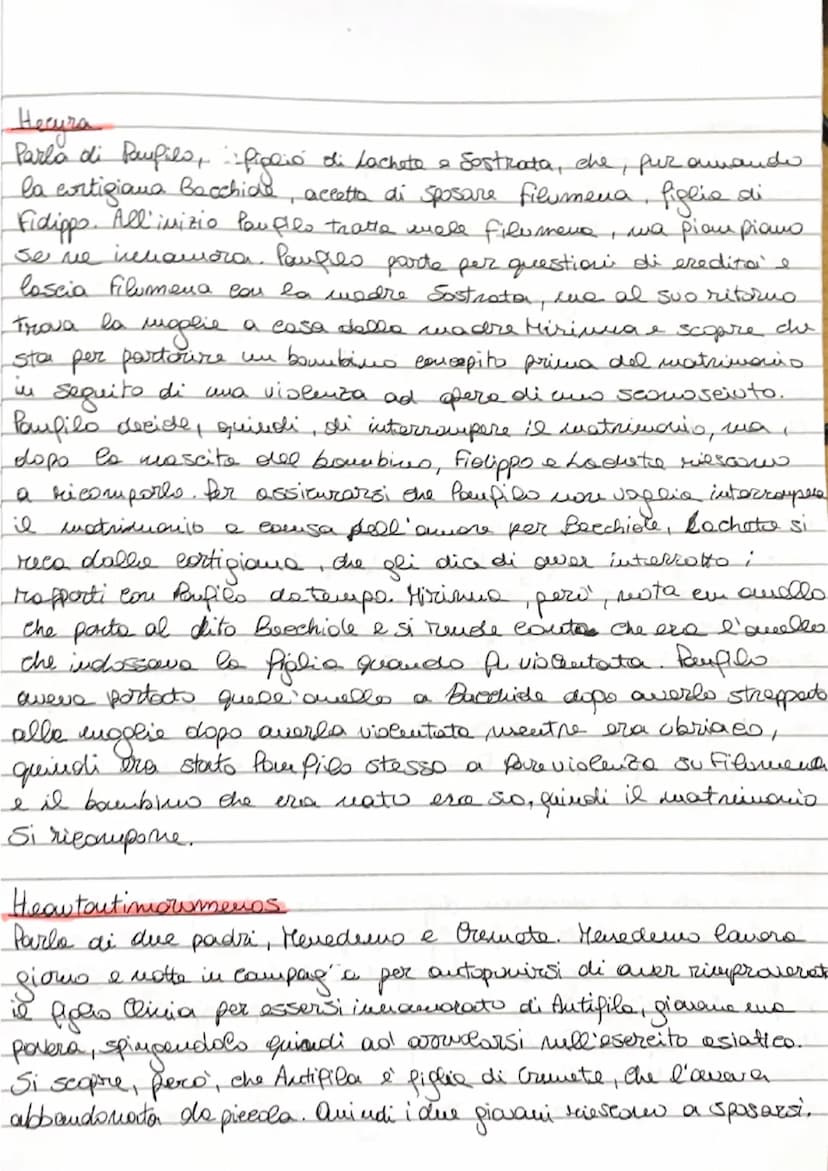 Hecyra
Parla di Panfilo, figlio di Lachete e Sostrata, che, pur amando
la cortigiana Bacchide, accetta di sposare Filumena, figlia di
Fidippo. All'inizio Panfilo tratta male Filumena, ma pian piano
se ne innamora. Panfilo parte per questioni di eredità e
lascia Filumena con la madre Sostrata, ma al suo ritorno
trova la moglie a casa della madre Mirinna e scopre che
sta per partorire un bambino concepito prima del matrimonio
in seguito di una violenza ad opera di uno sconosciuto.
Panfilo decide, quindi, di interrompere il matrimonio, ma,
dopo la nascita del bambino, Fidippo e Lachete riescono
a ricomporlo. Per assicurarsi che Panfilo non voglia interrompere
il matrimonio a causa dell'amore per Bacchide, Lachete si
reca dalla cortigiana, che gli dice di aver interrotto i
rapporti con Panfilo da tempo. Mirinna, però, nota un anello
che porta al dito Bacchide e si rende conto che era l'anello
che indossava la figlia quando fu violentata. Panfilo
aveva portato quell'anello a Bacchide dopo averlo strappato
alla moglie dopo averla violentata mentre era ubriaco,
quindi era stato Panfilo stesso a fare violenza su Filumena
e il bambino che era nato era suo, quindi il matrimonio
si ricompone.
Heautoutimorumenos
Parla di due padri, Menedemo e Cremete. Menedemo lavora
giorno e notte in campag a per autopunirsi di aver rimproverato
il figlio Clinia per essersi innamorato di Antifila, giovane ma
povera, spingendolo quindi ad arruolarsi nell'esercito asiatico.
Si scopre, però, che Antifila è figlia di Cremete, che l'aveva
abbandonata da piccola. Quindi i due giovani riescono a sposarsi.